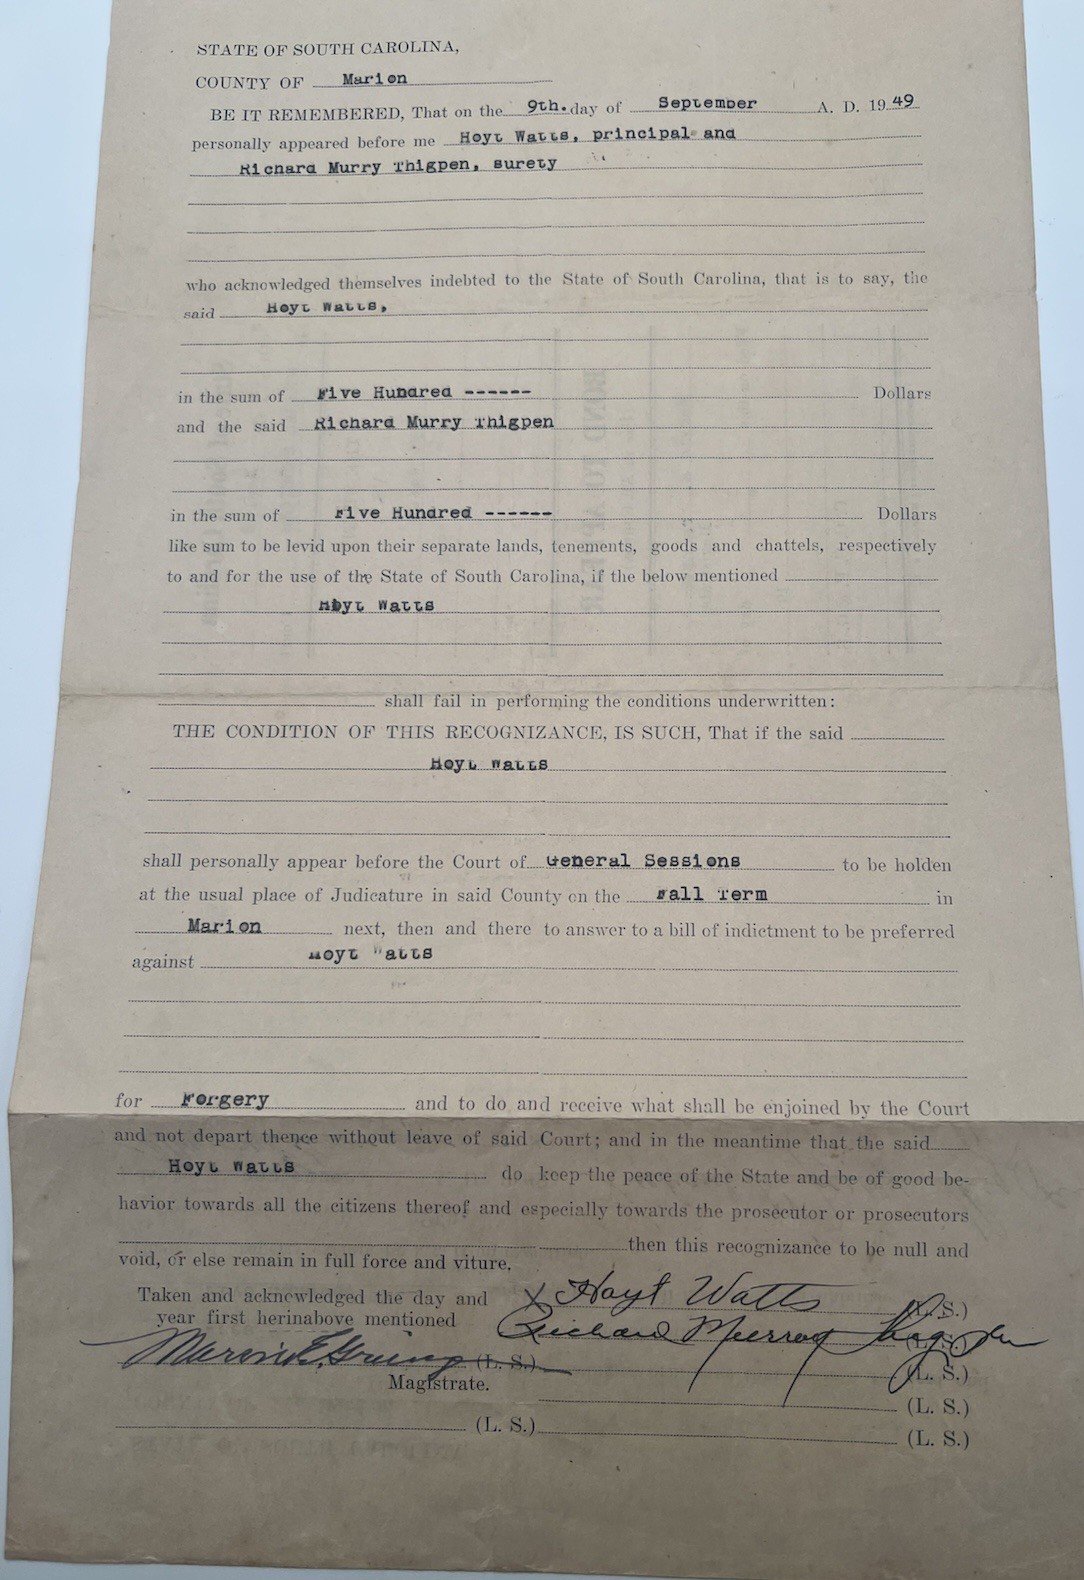 STATE OF SOUTH CAROLINA,
COUNTY OF Marion
BE IT REMEMBERED, That on the 9th. day of September A. D. 1949
personally appeared before me Hoyt Watts, principal and
Richard Murry Thigpen, surety
who acknowledged themselves indebted to the State of South Carolina, that is to say, the
said Hoyt Watts,
in the sum of Five Hundred ------ Dollars
and the said Richard Murry Thigpen
in the sum of Five Hundred ------ Dollars
like sum to be levid upon their separate lands, tenements, goods and chattels, respectively
to and for the use of the State of South Carolina, if the below mentioned
Hoyt Watts
shall fail in performing the conditions underwritten:
THE CONDITION OF THIS RECOGNIZANCE, IS SUCH, That if the said
Hoyt Watts
shall personally appear before the Court of General Sessions to be holden
at the usual place of Judicature in said County on the Fall Term in
Marion next, then and there to answer to a bill of indictment to be preferred
against Hoyt Watts
for Forgery and to do and receive what shall be enjoined by the Court
and not depart thence without leave of said Court; and in the meantime that the said
Hoyt Watts do keep the peace of the State and be of good be-
havior towards all the citizens thereof and especially towards the prosecutor or prosecutors
then this recognizance to be null and
void, or else remain in full force and viture.
Taken and acknowledged the day and X Hoyt Watts (L. S.)
year first herinabove mentioned Richard Murray Thigpen (L. S.)
(L. S.) (L. S.)
Magistrate.
(L. S.)
(L. S.) (L. S.)